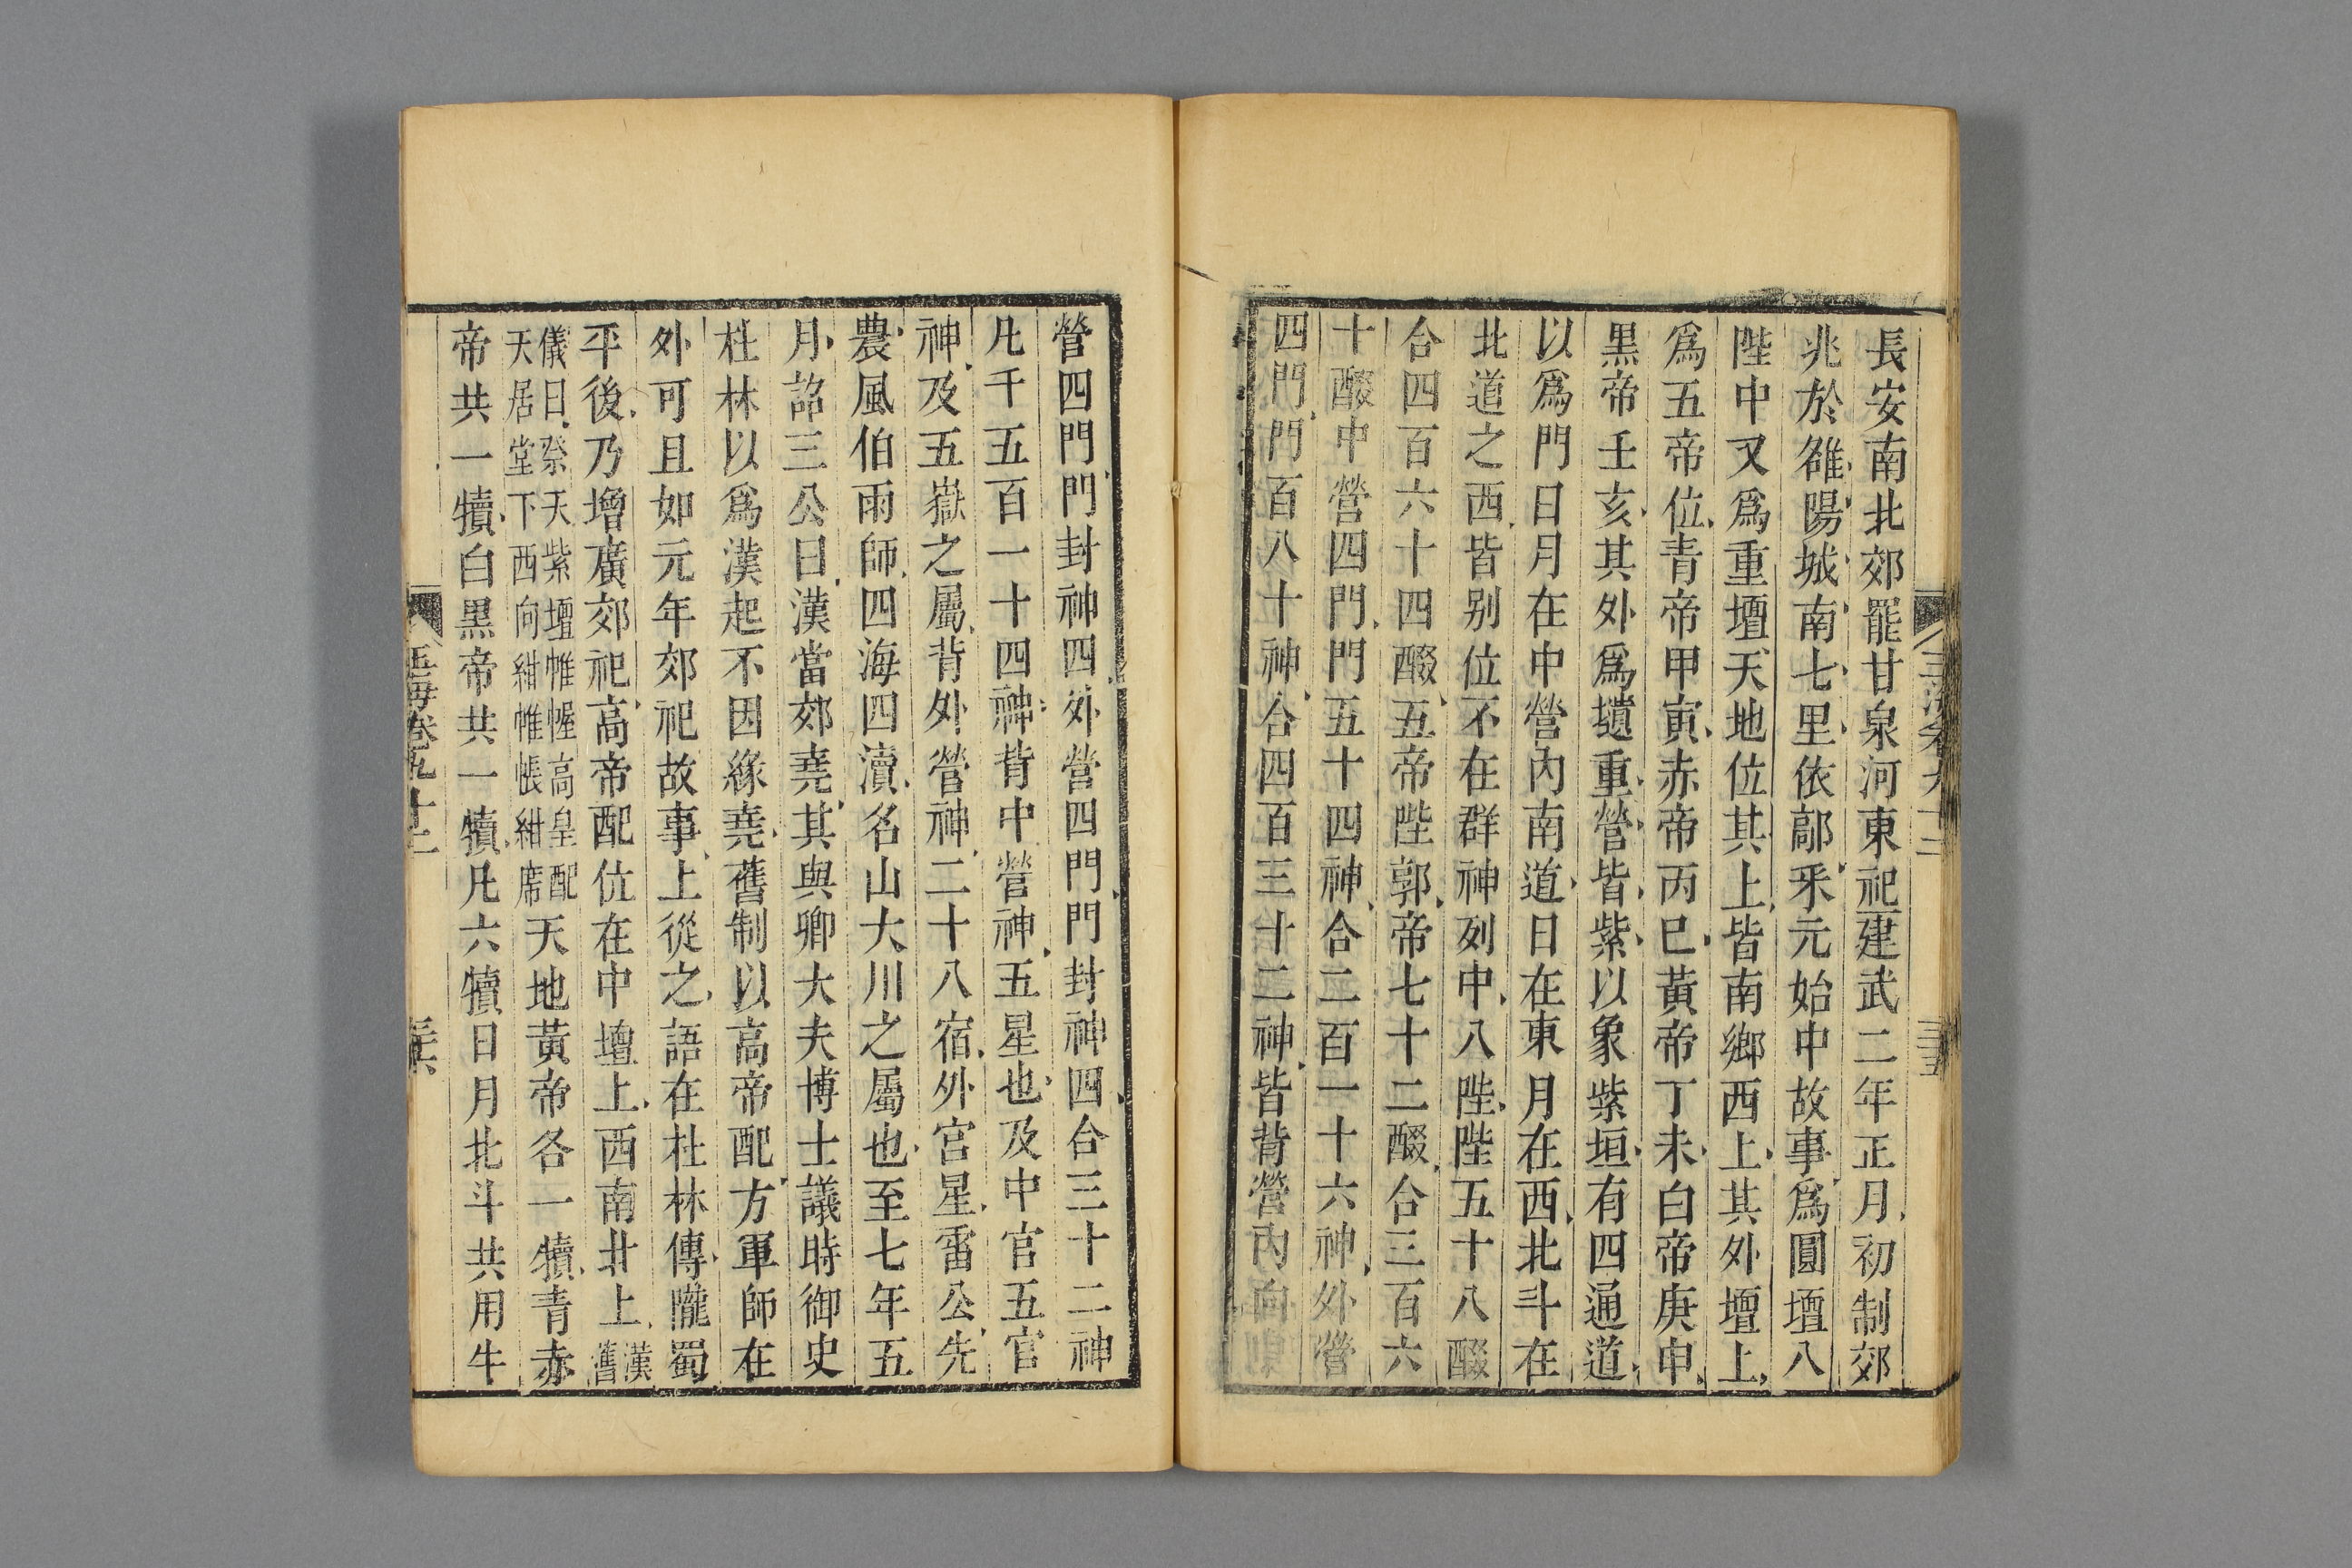 長安南北郊罷甘泉河東祀建武二年正月初制郊
兆於雒陽城南七里依鄗采元始中故事爲圓壇八
陛中又爲重壇天地位其上皆南鄉西上其外壇上
爲五帝位青帝甲寅赤帝丙巳黃帝丁未白帝庚申
黒帝壬亥其外爲壝重營皆紫以象紫垣有四通道
以爲門日月在中營內南道日在東月在西北斗在
北道之西皆别位不在群神列中八陛陛五十八醊
合四百六十四醊五帝陛郭帝七十二醊合三百六
十醊中營四門門五十四神合二百一十六神外營
四門門百八十神合四百三十二神皆背營內向
營四門門封神四外營四門門封神四合三十二神
凡千五百一十四神背中營神五星也及中官五官
神及五嶽之屬背外營神二十八宿外宮星雷公先
農風伯雨師四海四瀆名山大川之屬也至七年五
月詔三公曰漢當郊堯其與卿大夫博士議時御史
杜林以爲漢起不因緣堯舊制以高帝配方軍師在
外可且如元年郊祀故事上從之語在杜林傳隴蜀
平後乃增廣郊祀高帝配位在中壇上西南北上漢舊
儀曰祭天紫壇帷幄高皇配天居堂下西向紺帷帳紺席天地黃帝各一犢青赤
帝共一犢白黒帝共一犢凡六犢日月北斗共用牛